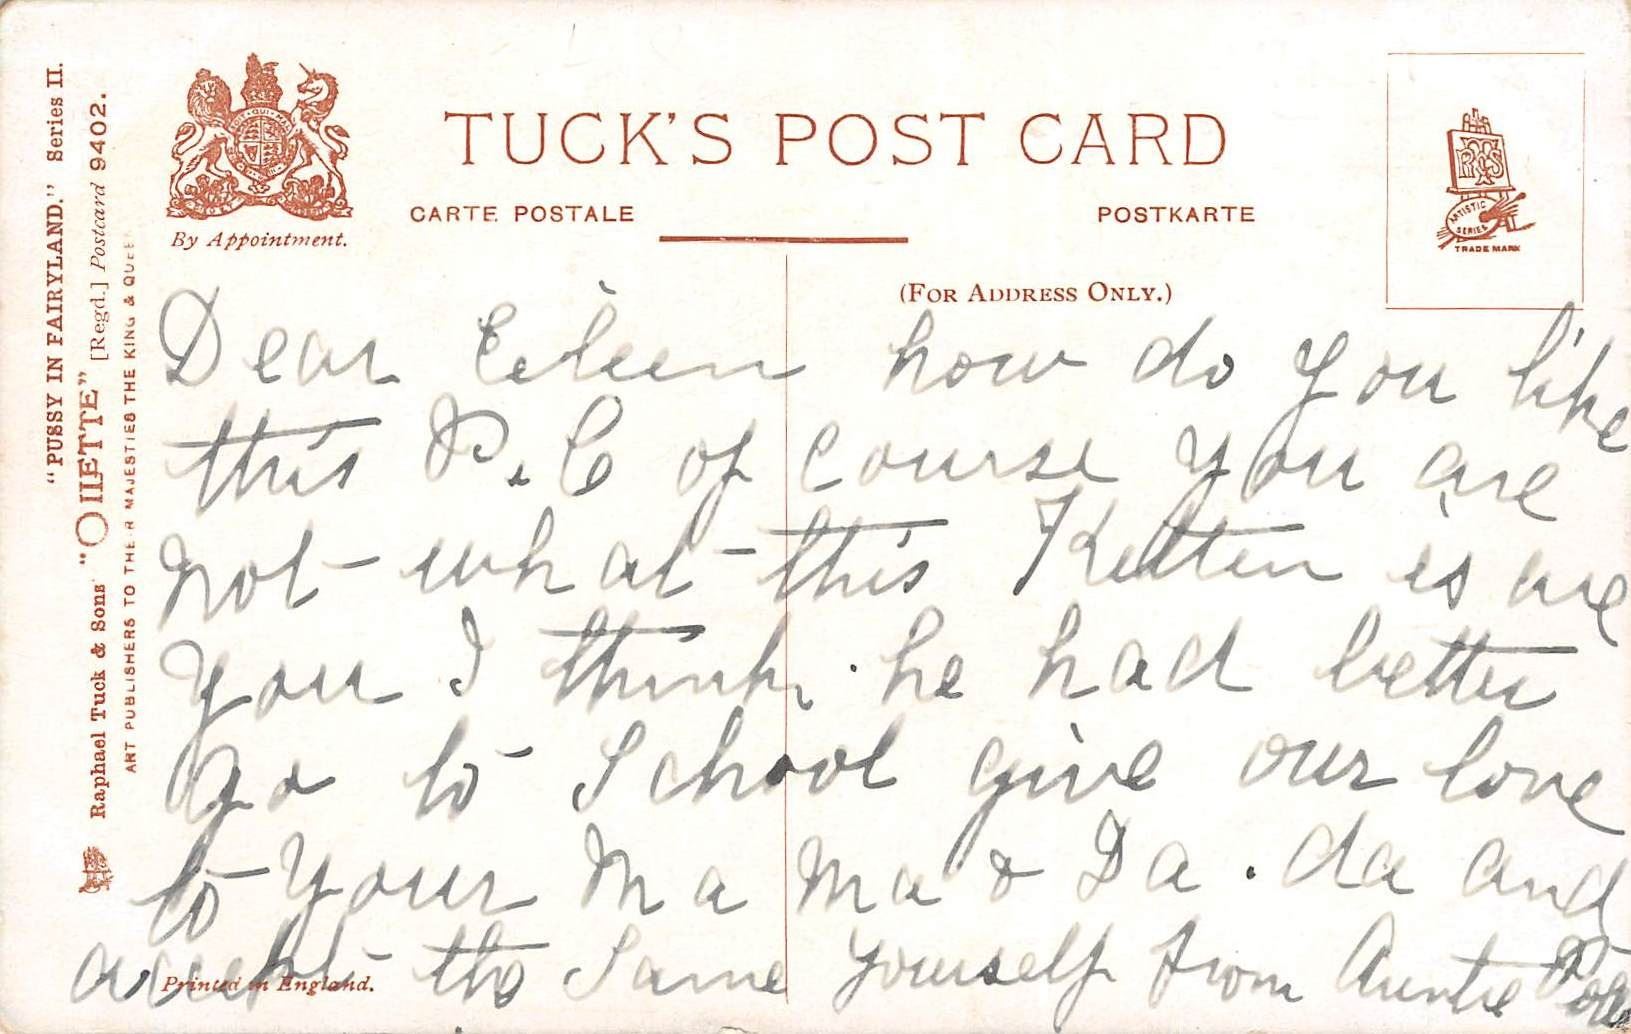 "PUSSY IN FAIRYLAND." Series II.
Raphael Tuck & Sons' "OILETTE" [Regd.] Postcard 9402.
ART PUBLISHERS TO THEIR MAJESTIES THE KING & QUEEN
By Appointment.
TUCK'S POST CARD
CARTE POSTALE
POSTKARTE
(FOR ADDRESS ONLY.)
ARTISTIC
SERIES
TRADE MARK
Dear Eileen how do you like
this P.C of course you are
not what this Kitten is are
you I think he had better
go to School give our love
to your Ma Ma & Da. da and
accept the Same yourself from Auntie
Printed in England.